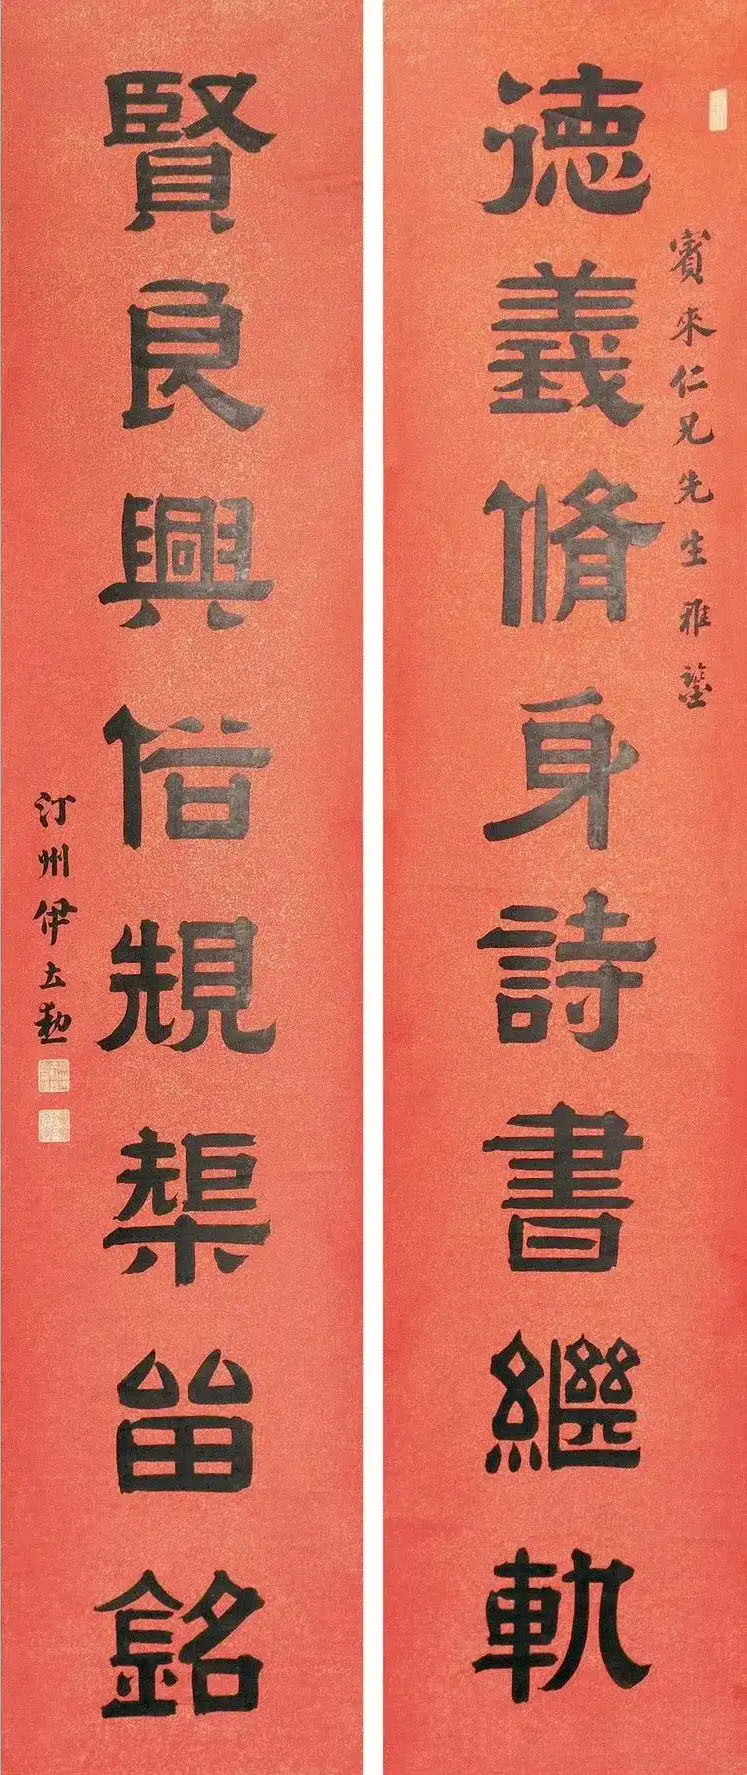 賓來仁兄先生雅鑒
德義脩身詩書繼軌
賢良興俗䂓榘畱銘
汀州伊立勳